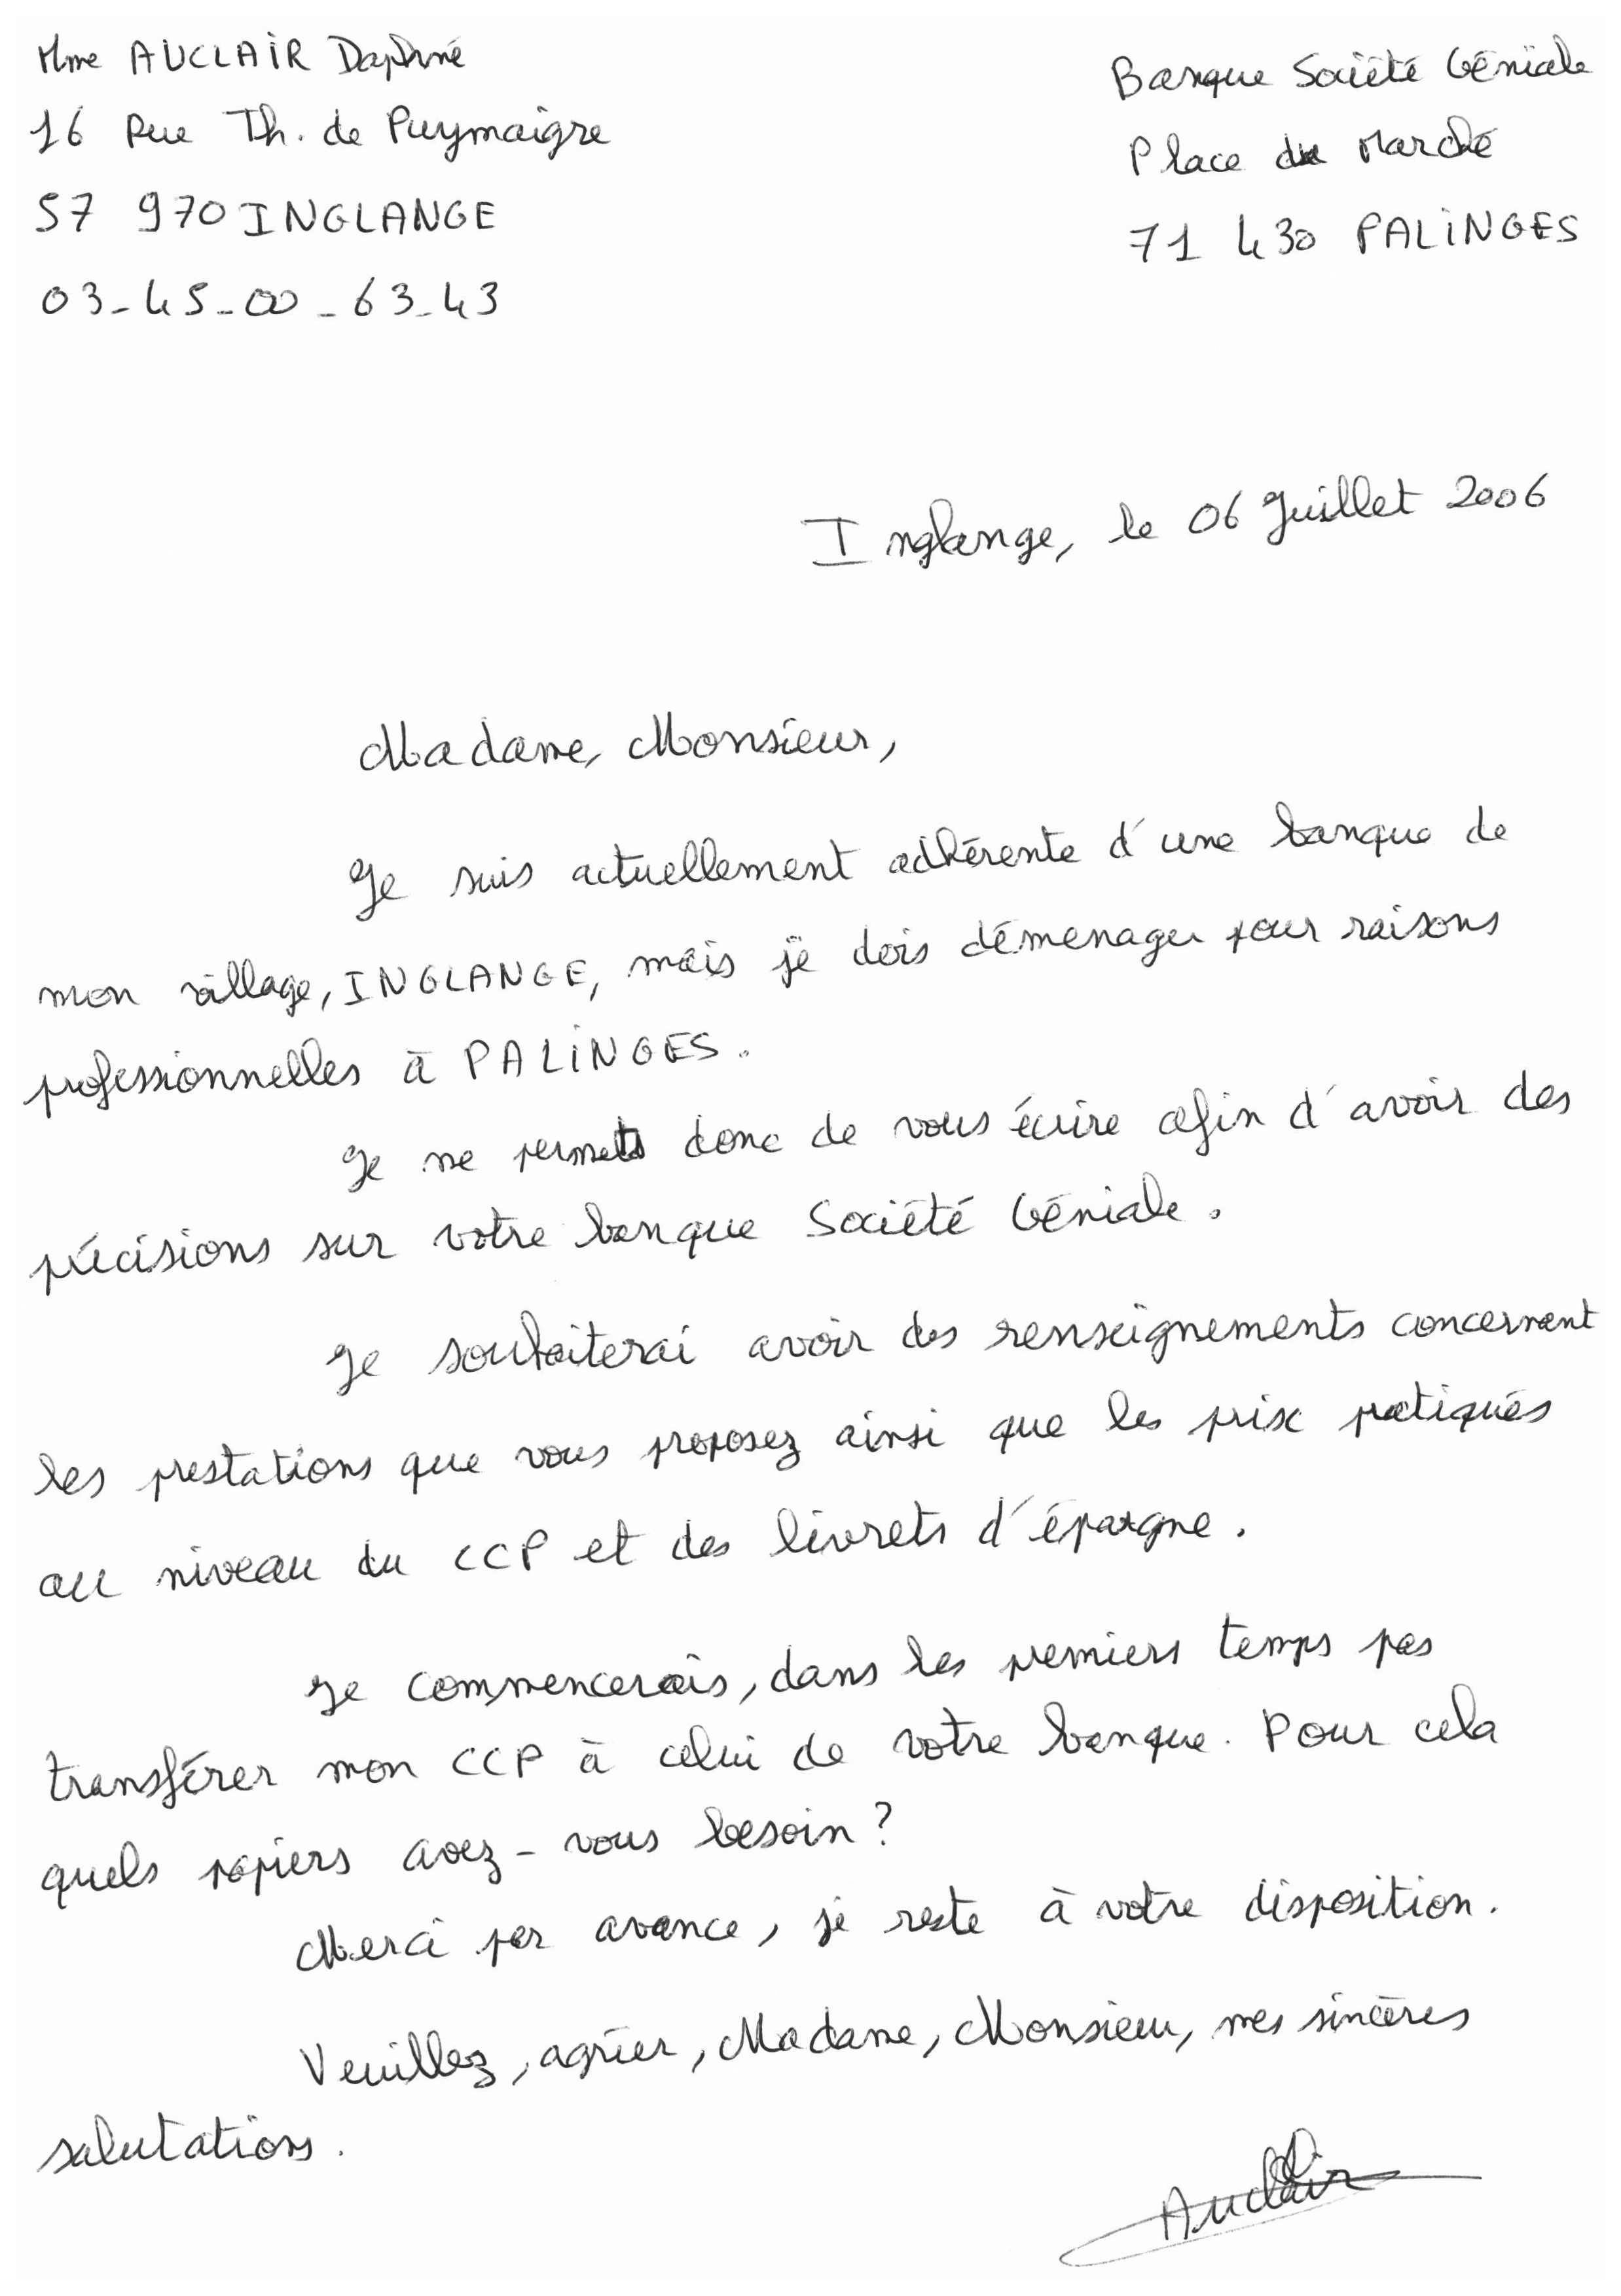 Mme AUCLAIR Daphné
16 Rue Th. de Puymaigre
57 970 INGLANGE
03-45-00-63-43
Banque Société Géniale
Place du Marché
71 430 PALINGES
Inglange, le 06 Juillet 2006
Madame, Monsieur,
Je suis actuellement adhérente d'une banque de
mon village, INGLANGE, mais je dois déménager pour raisons
professionnelles à PALINGES.
Je me permets donc de vous écrire afin d'avoir des
précisions sur votre banque Société Géniale.
Je souhaiterai avoir des renseignements concernant
les prestations que vous proposez ainsi que les prix pratiqués
au niveau du CCP et des livrets d'épargne.
Je commencerais, dans les premiers temps pas
transférer mon CCP à celui de votre banque. Pour cela
quels papiers avez-vous besoin ?
Merci par avance, je reste à votre disposition.
Veuillez, agréer, Madame, Monsieur, mes sincères
salutations.
Auclair